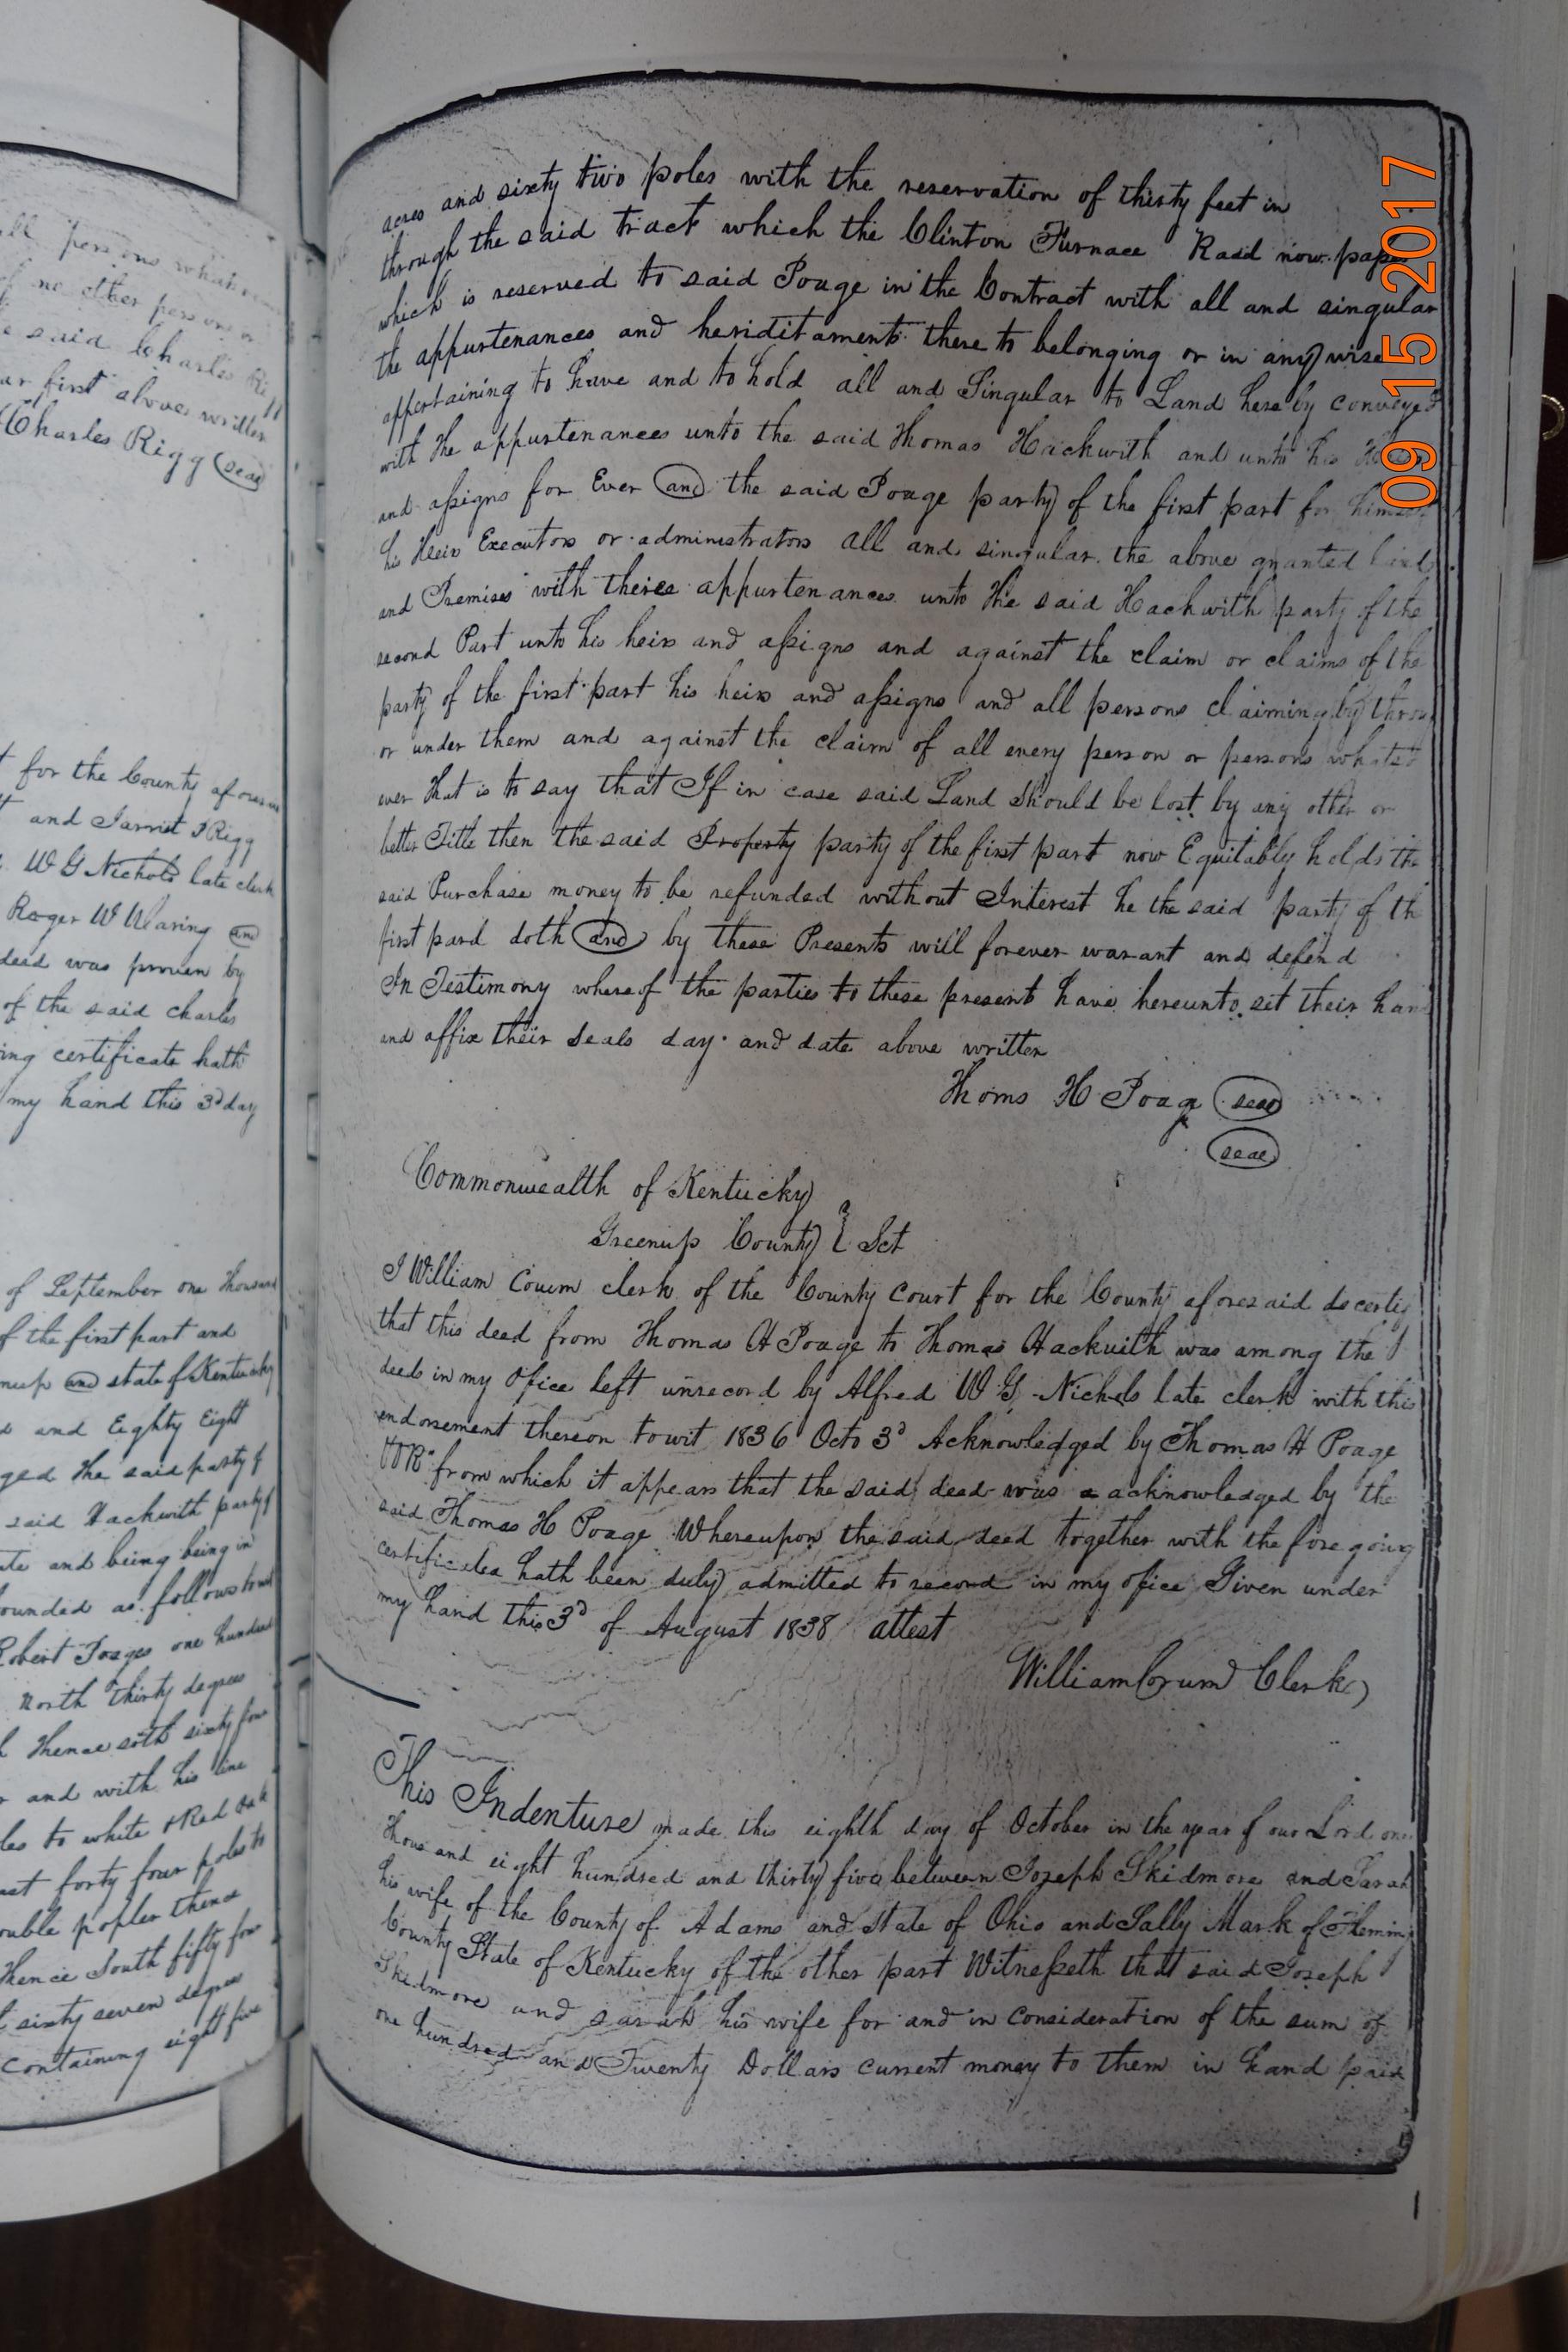 ll persons whatso
f no other persons or
e said Charles Rigg
ar first above written
Charles Rigg (seal)
t for the County afores
t and Jarrit Rigg
W G Nichols late clerk
Roger W Waring and
deed was proven by
of the said charles
ing certificate hath
my hand this 3d day
of September one thousand
f the first part and
nup and state of Kentucky
s and Eighty Eight
ged the said party of
said Hackwith party of
ate and being being in
ounded as follows to wit
Robert Poages one hundred
North thirty degrees
Thence soth sixty four
and with his line
les to white & Red Oak
ast forty four poles to
ouble popler thence
Thence South fifty four
t sixty seven degrees
containing eight five
acres and sixty two poles with the reservation of thirty feet in
through the said tract which the Clinton Furnace Raad now pases
which is reserved to said Poage in the Contract with all and singular
the appurtenances and heriditaments there to belonging or in any wise
appertaining to have and to hold all and Singular to Land here by conveyed
with the appurtenances unto the said Thomas Hackwith and unto his Heirs
and assigns for Ever and the said Poage party of the first part for himself
his Heirs Executors or administrators all and singular the above granted Land
and Premises with theire appurtenances unto the said Hackwith party of the
second Part unto his heirs and assigns and against the claim or claims of the
party of the first part his heirs and assigns and all persons claiming by throu
or under them and against the claim of all every person or persons whatso
ever that is to say that If in case said Land should be lost by any other or
better Title then the said Property party of the first part now Equitably holds the
said Purchase money to be refunded without Interest he the said party of th
first pard doth and by these Presents will forever warant and defend
In Testimony whereof the parties to these present have hereunto set their han
and affix their Seals day and date above written
Thoms H Poage (seal)
(seal)
Commonwealth of Kentucky
Greenup County } Sct
I William Corum clerk of the County Court for the County aforesaid do certify
that this deed from Thomas H Poage to Thomas Hackwith was among the
deeds in my Ofice left unrecord by Alfred W G Nichols late clerk with this
endorsement thereon to wit 1836 Octo 3d Acknowledged by Thomas H Poage
from which it appears that the said deed was a acknowledged by the
said Thomas H Poage Whereupon the said deed together with the fore going
certificates hath been duly admitted to record in my ofice Given under
my hand this 3d of August 1838 attest
William Corum Clerk
This Indenture made this eighth day of October in the year of our Lord one
thous and eight hundred and thirty five between Joseph Skidmore and Sarah
his wife of the County of Adams and State of Ohio and Sally Mark of Flemin
County State of Kentucky of the other part Witnesseth that said Joseph
Skidmore and sarah his wife for and in consideration of the sum of
one hundred and Twenty Dollars current money to them in hand paid
09 15 2017